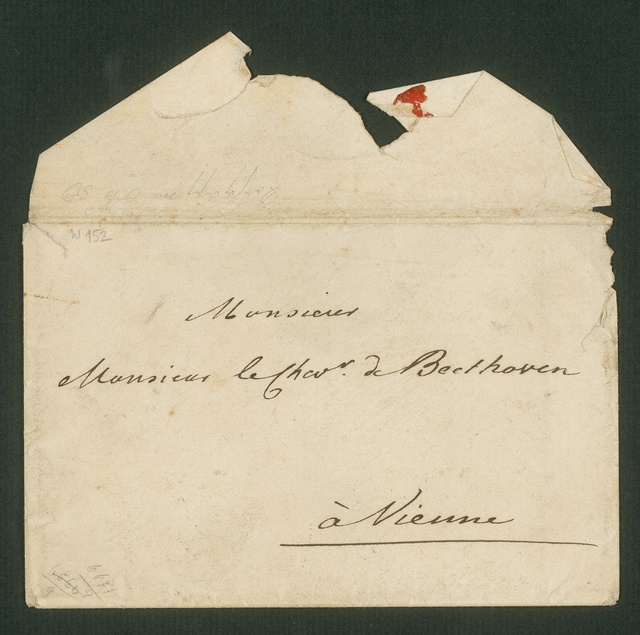 W 152
Monsieur
Monsieur le Chevr. de Beethoven
à Vienne